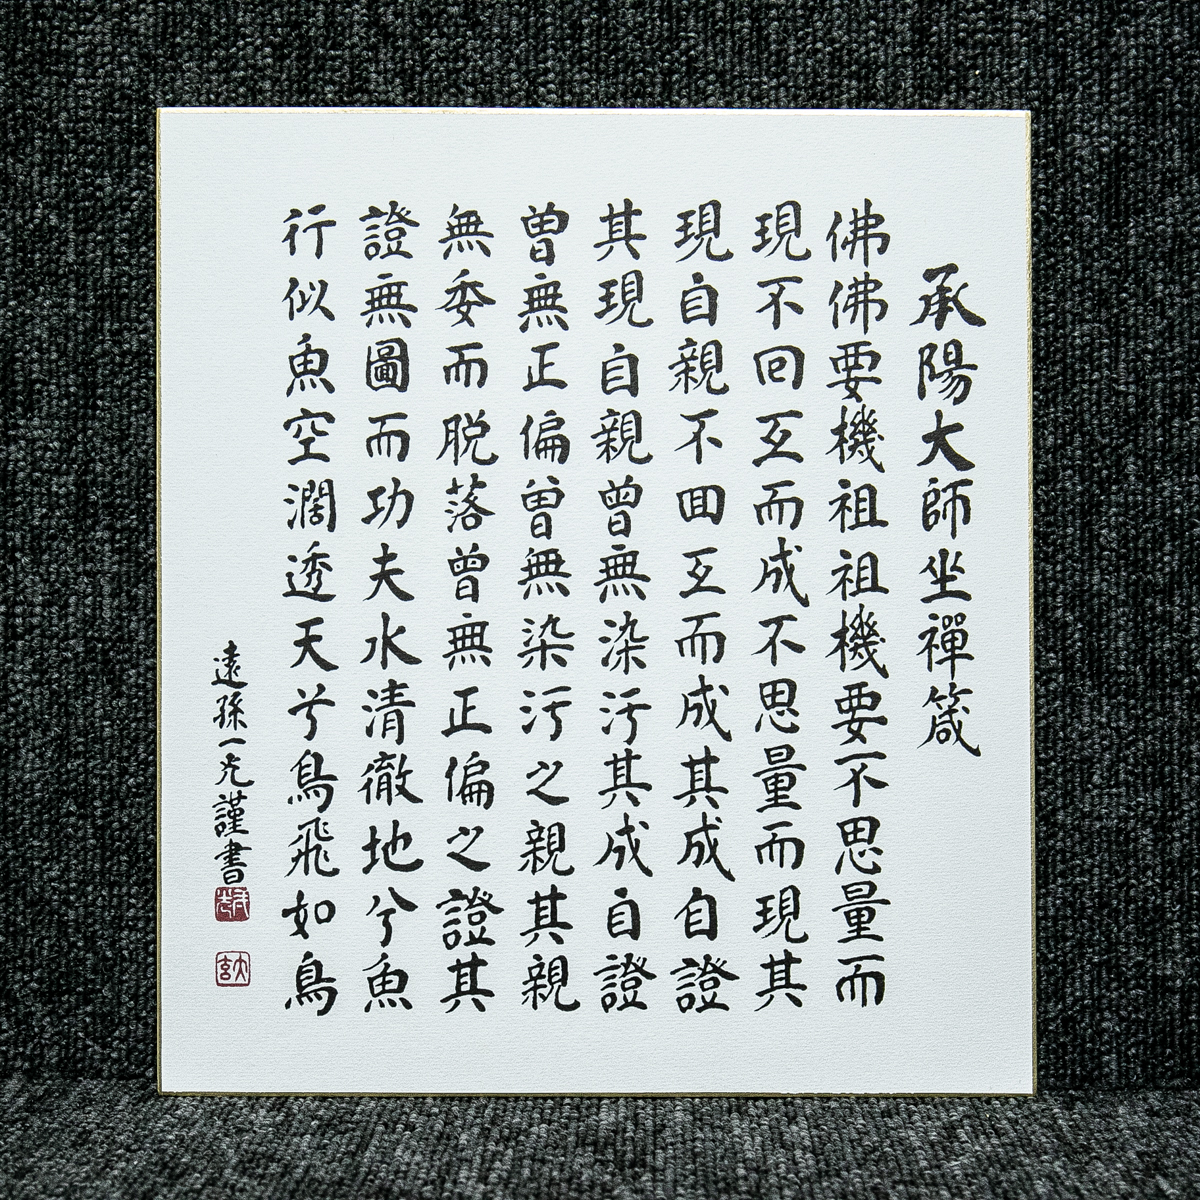 承陽大師坐禪箴
佛佛要機祖祖機要不思量而
現不回互而成不思量而現其
現自親不回互而成其成自證
其現自親曽無染汚其成自證
曽無正偏曽無染汚之親其親
無委而脱落曽無正偏之證其
證無圖而功夫水清徹地兮魚
行似魚空濶透天兮鳥飛如鳥
遠孫一光謹書